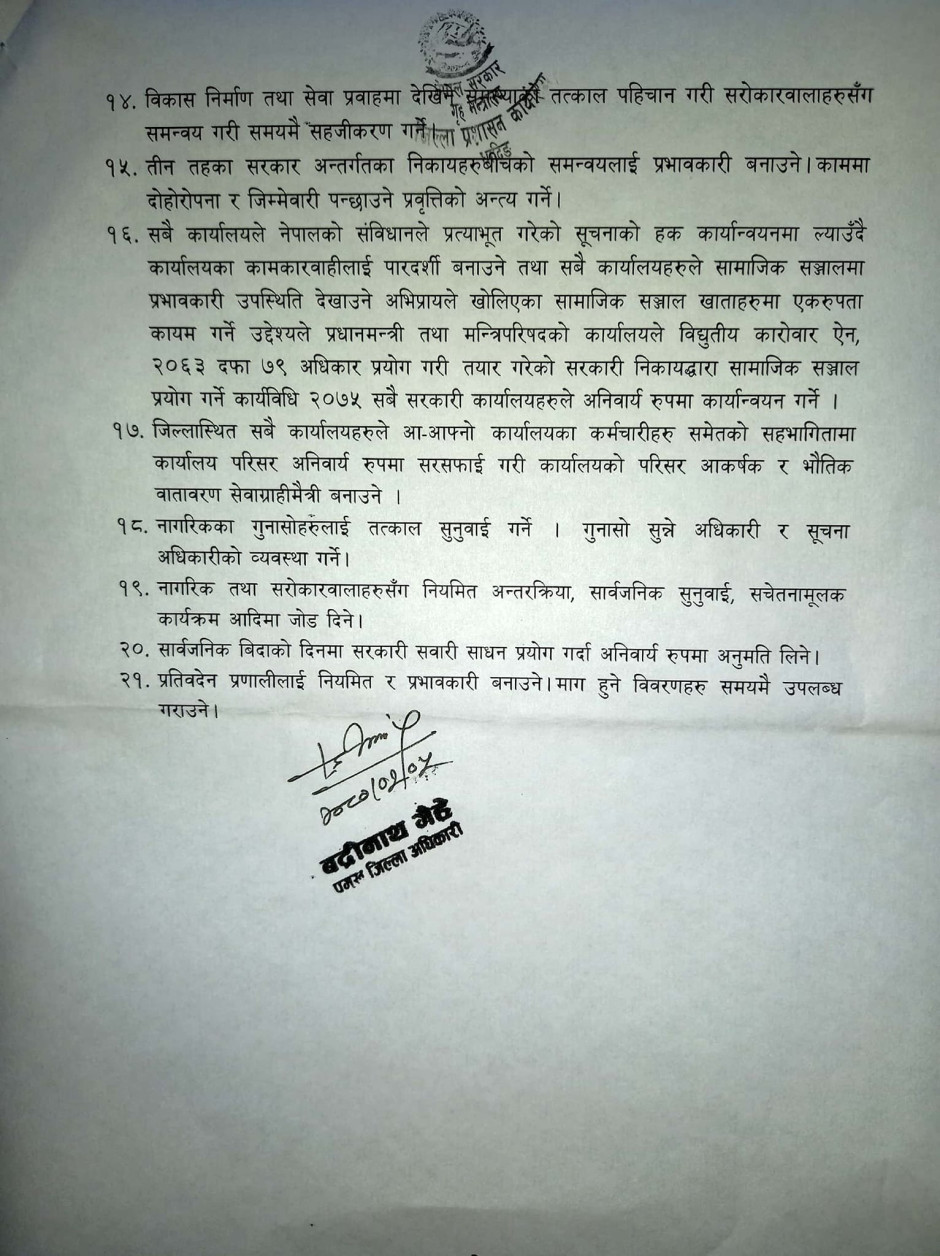 नेपाल सरकार
गृह मन्त्रालय
जिल्ला प्रशासन कार्यालय
धादिङ
१४. विकास निर्माण तथा सेवा प्रवाहमा देखिने समस्याको तत्काल पहिचान गरी सरोकारवालाहरुसँग
समन्वय गरी समयमै सहजीकरण गर्ने।
१५. तीन तहका सरकार अन्तर्गतका निकायहरुबीचको समन्वयलाई प्रभावकारी बनाउने। काममा
दोहोरोपना र जिम्मेवारी पन्छाउने प्रवृत्तिको अन्त्य गर्ने।
१६. सबै कार्यालयले नेपालको संविधानले प्रत्याभूत गरेको सूचनाको हक कार्यान्वयनमा ल्याउँदै
कार्यालयका कामकारवाहीलाई पारदर्शी बनाउने तथा सबै कार्यालयहरुले सामाजिक सञ्जालमा
प्रभावकारी उपस्थिति देखाउने अभिप्रायले खोलिएका सामाजिक सञ्जाल खाताहरुमा एकरुपता
कायम गर्ने उद्देश्यले प्रधानमन्त्री तथा मन्त्रिपरिषदको कार्यालयले विद्युतीय कारोवार ऐन,
२०६३ दफा ७९ अधिकार प्रयोग गरी तयार गरेको सरकारी निकायद्धारा सामाजिक सञ्जाल
प्रयोग गर्ने कार्यविधि २०७५ सबै सरकारी कार्यालयहरुले अनिवार्य रुपमा कार्यान्वयन गर्ने ।
१७. जिल्लास्थित सबै कार्यालयहरुले आ-आफ्नो कार्यालयका कर्मचारीहरु समेतको सहभागितामा
कार्यालय परिसर अनिवार्य रुपमा सरसफाई गरी कार्यालयको परिसर आकर्षक र भौतिक
वातावरण सेवाग्राहीमैत्री बनाउने ।
१८. नागरिकका गुनासोहरुलाई तत्काल सुनुवाई गर्ने । गुनासो सुन्ने अधिकारी र सूचना
अधिकारीको व्यवस्था गर्ने।
१९. नागरिक तथा सरोकारवालाहरुसँग नियमित अन्तरक्रिया, सार्वजनिक सुनुवाई, सचेतनामूलक
कार्यक्रम आदिमा जोड दिने।
२०. सार्वजनिक बिदाको दिनमा सरकारी सवारी साधन प्रयोग गर्दा अनिवार्य रुपमा अनुमति लिने।
२१. प्रतिवदेन प्रणालीलाई नियमित र प्रभावकारी बनाउने। माग हुने विवरणहरु समयमै उपलब्ध
गराउने।
बद्रीनाथ गैह्रे
प्रमुख जिल्ला अधिकारी